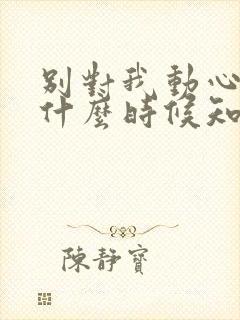 別對我動心
什麼時候知
陳靜寶